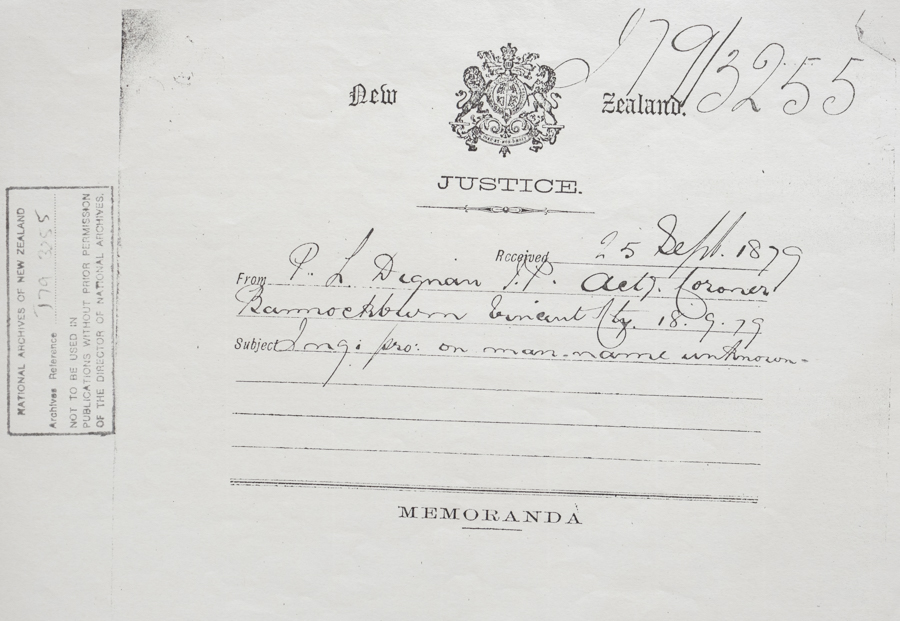 J79/3255
New Zealand.
JUSTICE.
Received 25 Sept. 1879
From P. L Dignan J.P. Actg. Coroner
Bannockburn Vincent Cty. 18.9.79
Subject Inq: pro: on man-name unknown-
MEMORANDA
NATIONAL ARCHIVES OF NEW ZEALAND
Archives Reference J79 3255
NOT TO BE USED IN
PUBLICATIONS WITHOUT PRIOR PERMISSION
OF THE DIRECTOR OF NATIONAL ARCHIVES.